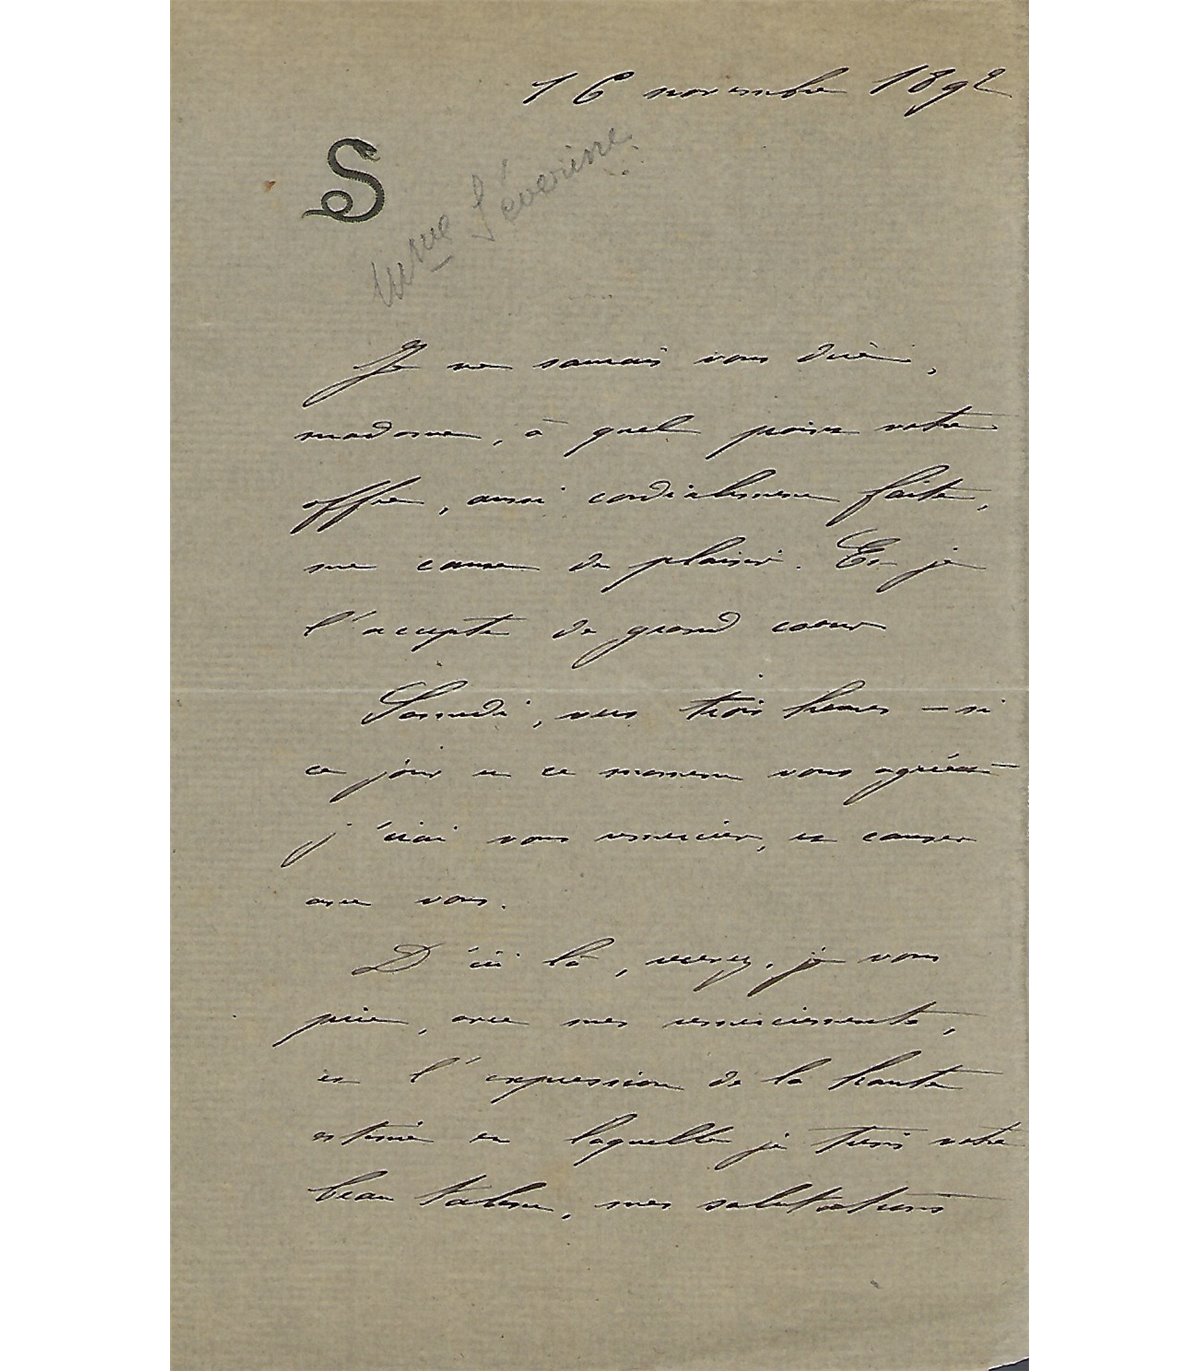 16 novembre 1892
S
Mme Séverine.
Je ne saurais vous dire,
madame, à quel point votre
offre, aussi cordialement faite,
me cause de plaisir. Et je
l'accepte de grand cœur
Samedi, vers trois heures — si
ce jour et ce moment vous agréent —
j'irai vous remercier, et causer
avec vous.
D'ici là, veuillez, je vous
prie, avec mes remerciements,
et l'expression de la haute
estime en laquelle je tiens votre
beau talent, mes salutations